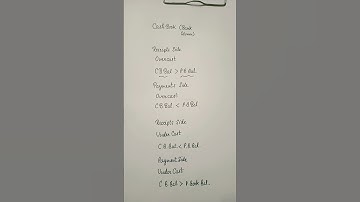 Cash Book (Bank
Column)
Receipts Side
Overcast
C B Bal > P B Bal
Payments Side
Overcast
C B Bal < P B Bal
Receipts Side
Under Cast
C B Bal < P B Bal
Payment Side
Under Cast
C B Bal > P Book Bal